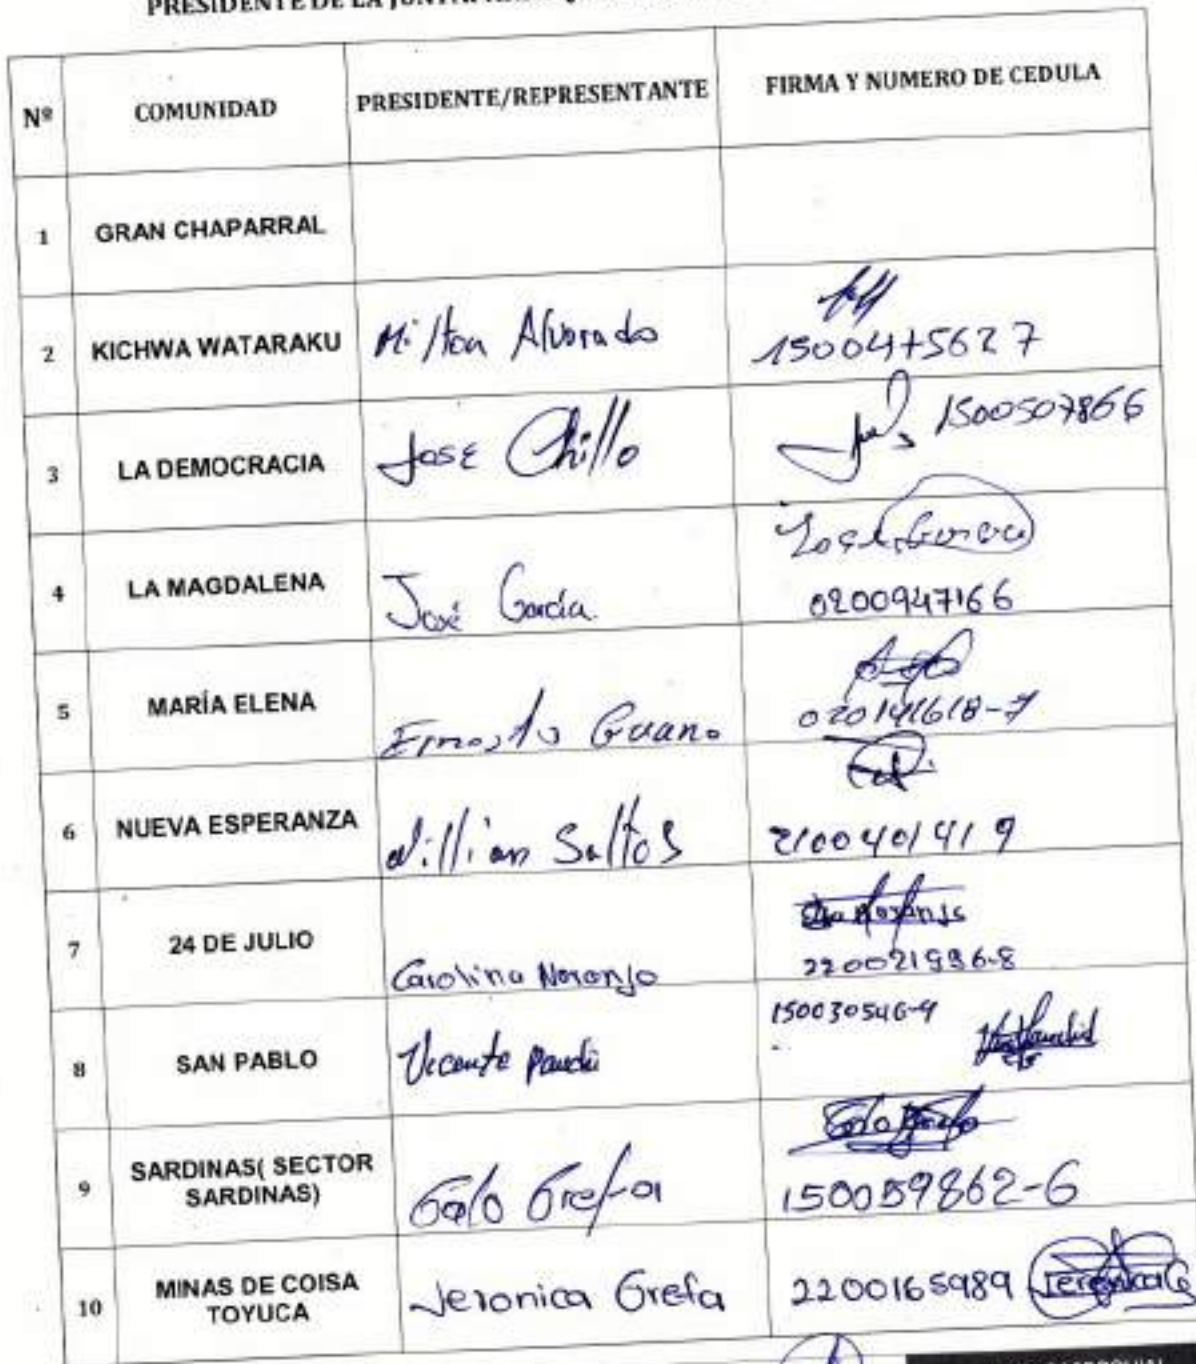 PRESIDENTE DE LA JUNTA
Nº COMUNIDAD PRESIDENTE/REPRESENTANTE FIRMA Y NUMERO DE CEDULA
1 GRAN CHAPARRAL
2 KICHWA WATARAKU Milton Alvarado 1500475627
3 LA DEMOCRACIA José Chillo 1500507866
4 LA MAGDALENA José García. 0200947166
5 MARÍA ELENA Ernesto Guano 020141618-7
6 NUEVA ESPERANZA Willian Saltos 2100401419
7 24 DE JULIO Carolina Naranjo 220021996-8
8 SAN PABLO Vicente 150030546-9
9 SARDINAS( SECTOR SARDINAS) Galo Grefa 150059862-6
10 MINAS DE COISA TOYUCA Veronica Grefa 2200165989